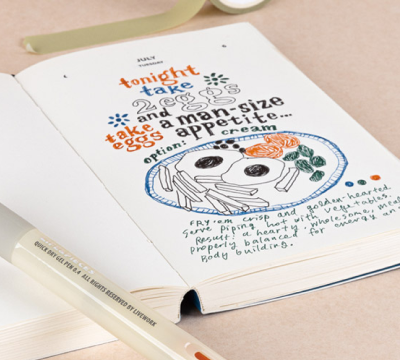 JULY
TUESDAY
tonight
take
2 eggs
and a man-size
take appetite...
eggs
option: cream
FRY-em crisp and golden-hearted
Serve Piping hot with vegetables.
Result: a hearty, wholesome, meal
properly balanced for energy an
Body building.
QUICK DRY GEL PEN 0.4 ALL RIGHTS RESERVED BY LIVEWORK